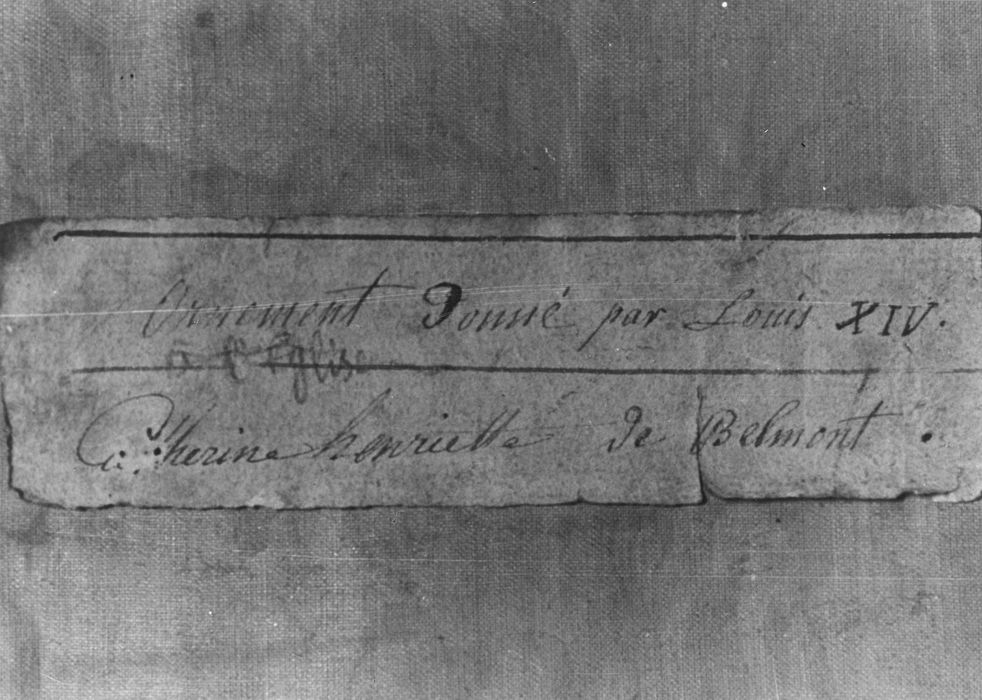 Ornement Donné par Louis XIV.
à l'Église
Catherine henriette de Belmont .